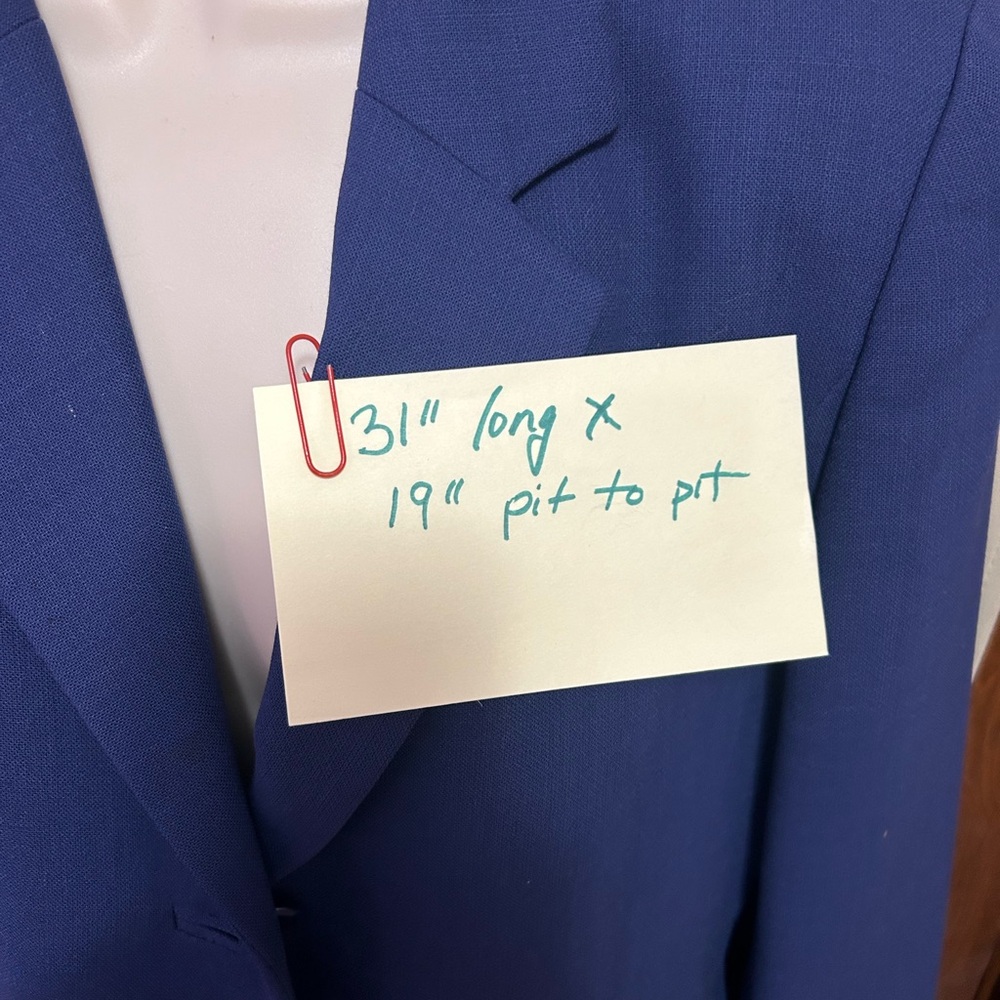 31" long x
19" pit to pit